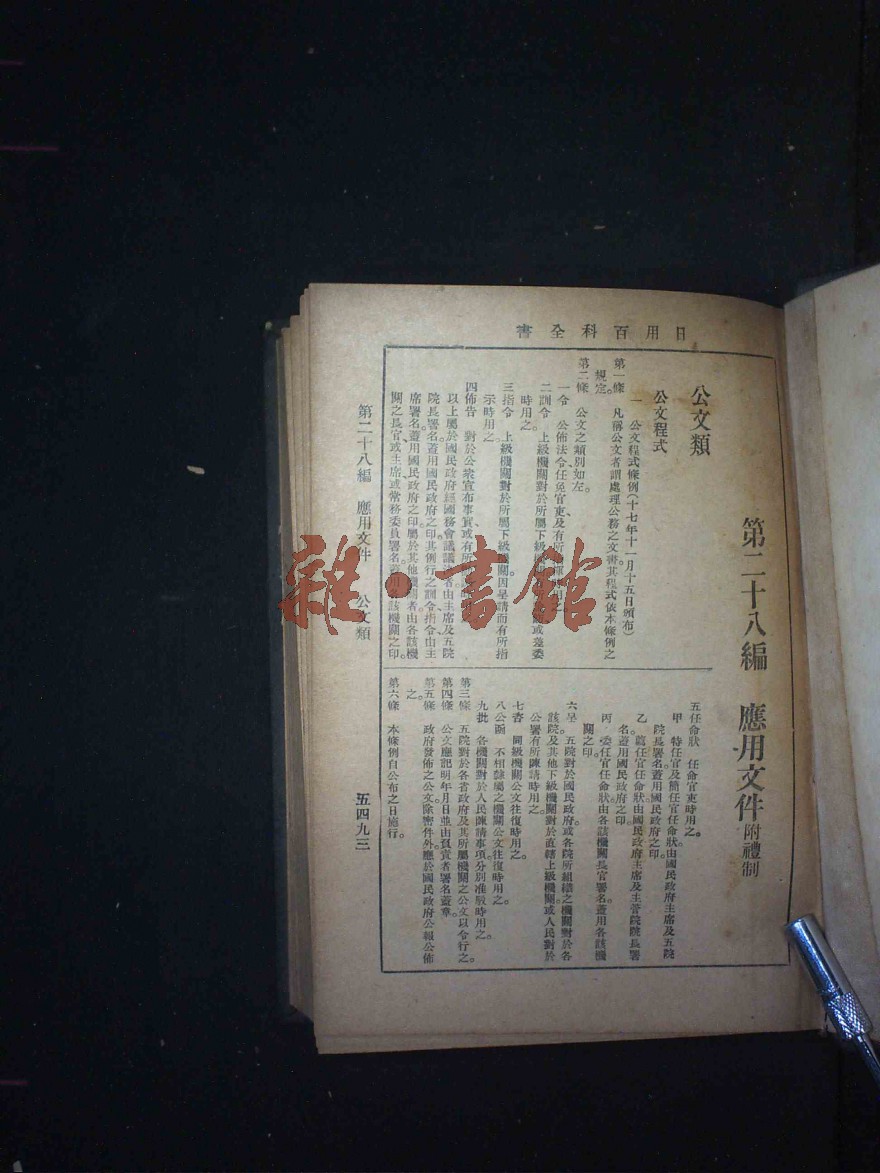 日用百科全書
第二十八編 應用文件 附禮制
公文類
公文程式
一 公文程式條例(十七年十一月十五日頒布)
第一條 凡稱公文者謂處理公務之文書其程式依本條例之
規定。
第二條 公文之類別如左。
一令 公佈法令、任免官吏、及有所
二訓令 上級機關對於所屬下級機關 或差委
時用之。
三指令 上級機關對於所屬下級機關因呈請而有所指
示時用之。
四佈告 對於公衆宣布事實或有所
以上屬於國民政府經國務會議議 者由主席及五院
院長署名、蓋用國民政府之印其例行之訓令、指令由主
席署名蓋用國民政府之印屬於其他機關者由各該機
關之長官、或主席或常務委員署名蓋用各該機關之印。
五任命狀 任命官吏時用之。
甲 特任官及簡任官任命狀由國民政府主席及五院
院長署名、蓋用國民政府之印。
乙 薦任官任命狀由國民政府主席及主管院院長署
名蓋用國民政府之印
丙 委任官任命狀由各該機關長官署名、蓋用各該機
關之印。
六呈 五院對於國民政府、或各院所組織之機關對於各
該院及其他下級機關對於直轄上級機關、或人民對於
公署有所陳請時用之。
七咨 同級機關公文往復時用之。
八公函 不相隸屬之機關公文往復時用之。
九批 各機關對於人民陳請事項分別准駁時用之。
第三條 五院對於各省政府及其所屬機關之公文以令行之。
第四條 公文應記明年月日並由負責者署名蓋章。
第五條 政府發佈之公文除密件外應於國民政府公報公佈
之。
第六條 本條例自公布之日施行。
第二十八編 應用文件 公文類
五四九三
雜·書館